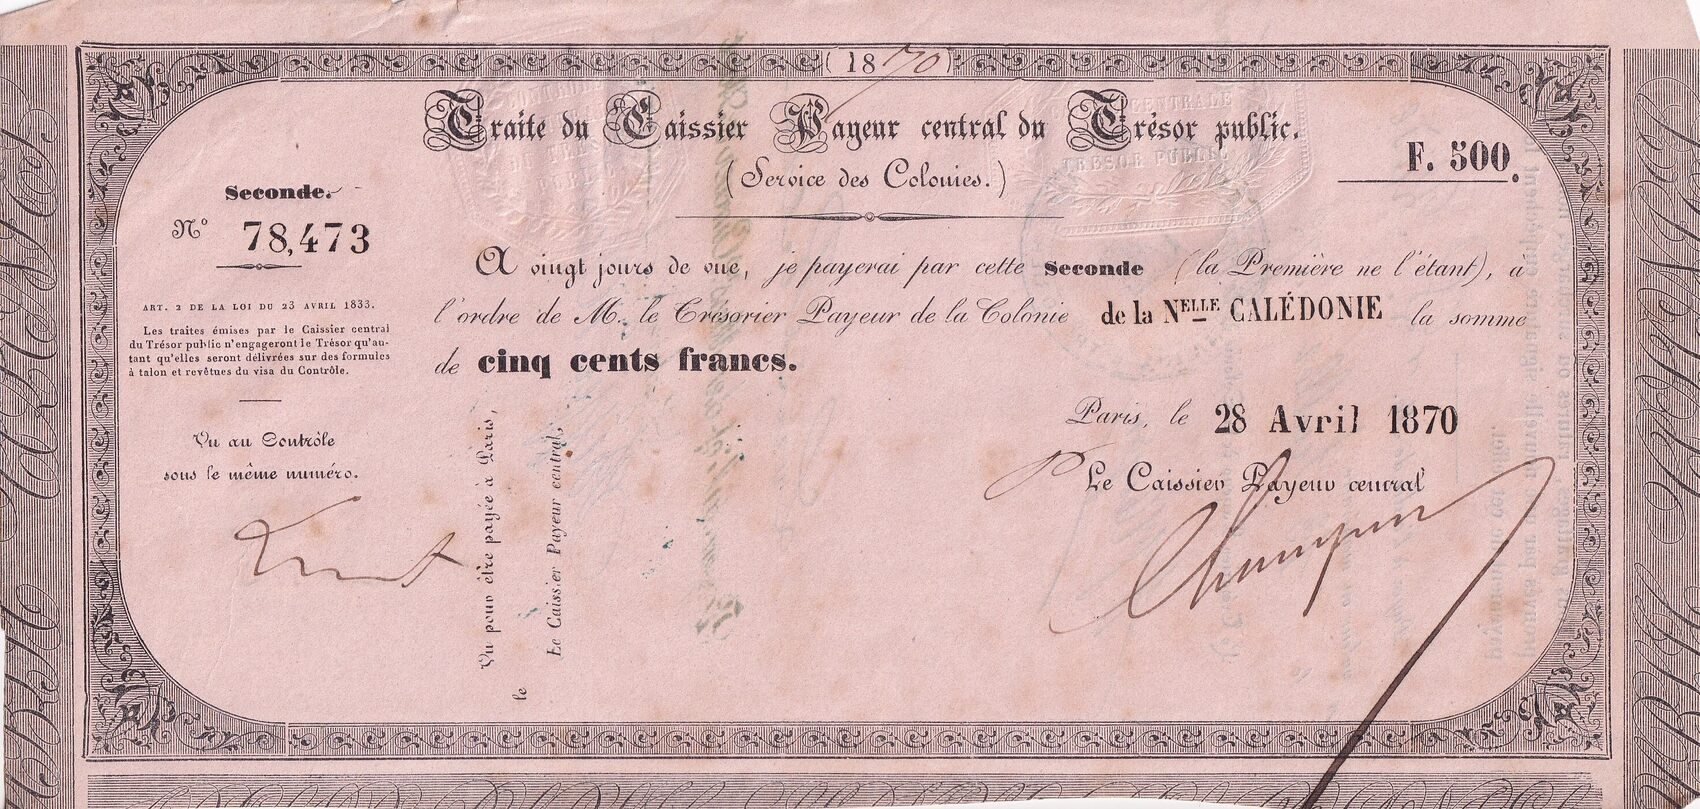 (1870)
Traite du Caissier Payeur central du Trésor public.
(Service des Colonies.)
F. 500.
Seconde.
N° 78,473
ART. 2 DE LA LOI DU 23 AVRIL 1833.
Les traites émises par le Caissier central
du Trésor public n'engageront le Trésor qu'au-
tant qu'elles seront délivrées sur des formules
à talon et revêtues du visa du Contrôle.
Vu au Contrôle
sous le même numéro.
A vingt jours de vue, je payerai par cette Seconde (la Première ne l'étant), à
l'ordre de M. le Trésorier Payeur de la Colonie de la NELLE CALÉDONIE la somme
de cinq cents francs.
Paris, le 28 Avril 1870
Le Caissier Payeur central
Vu pour être payée à Paris,
le
Le Caissier Payeur central,
CENTRALE
TRESOR PUBLIC